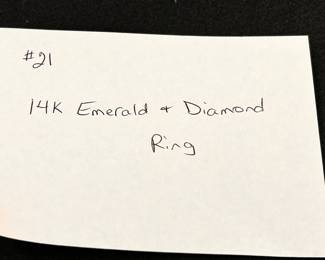 #21
14K Emerald + Diamond
Ring